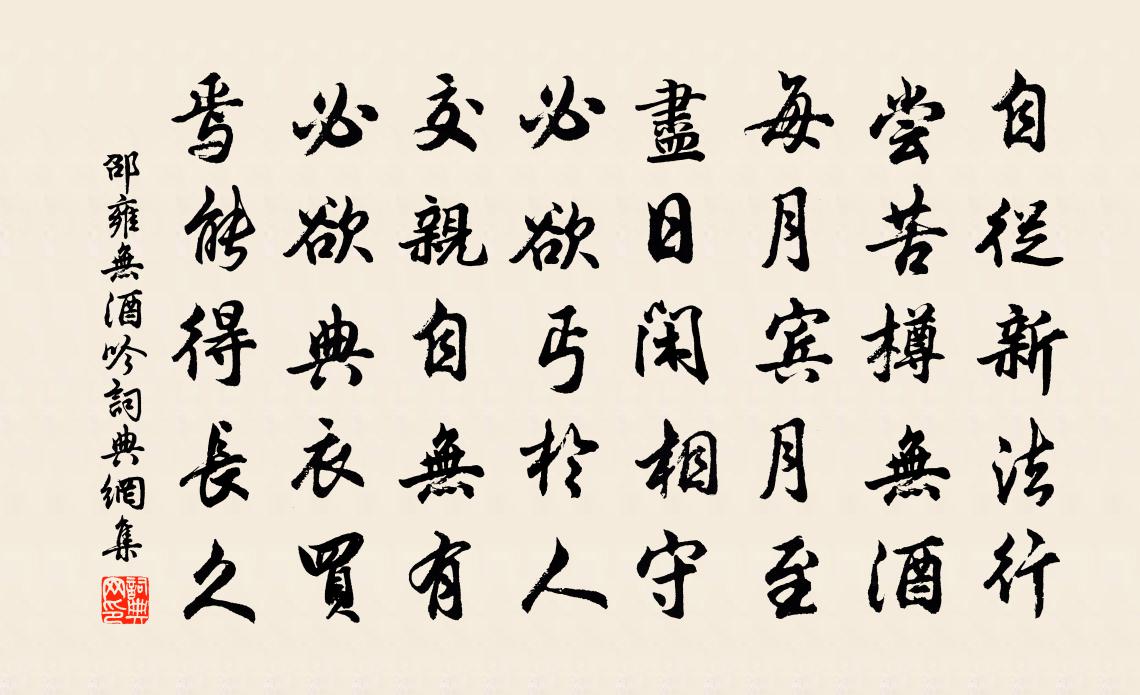 自從新法行
尝苦樽無酒
每月賓月至
盡日閑相守
必欲丐於人
交親自無有
必欲典衣買
焉能得長久
邵雍無酒吟詞典網集
詞典网印